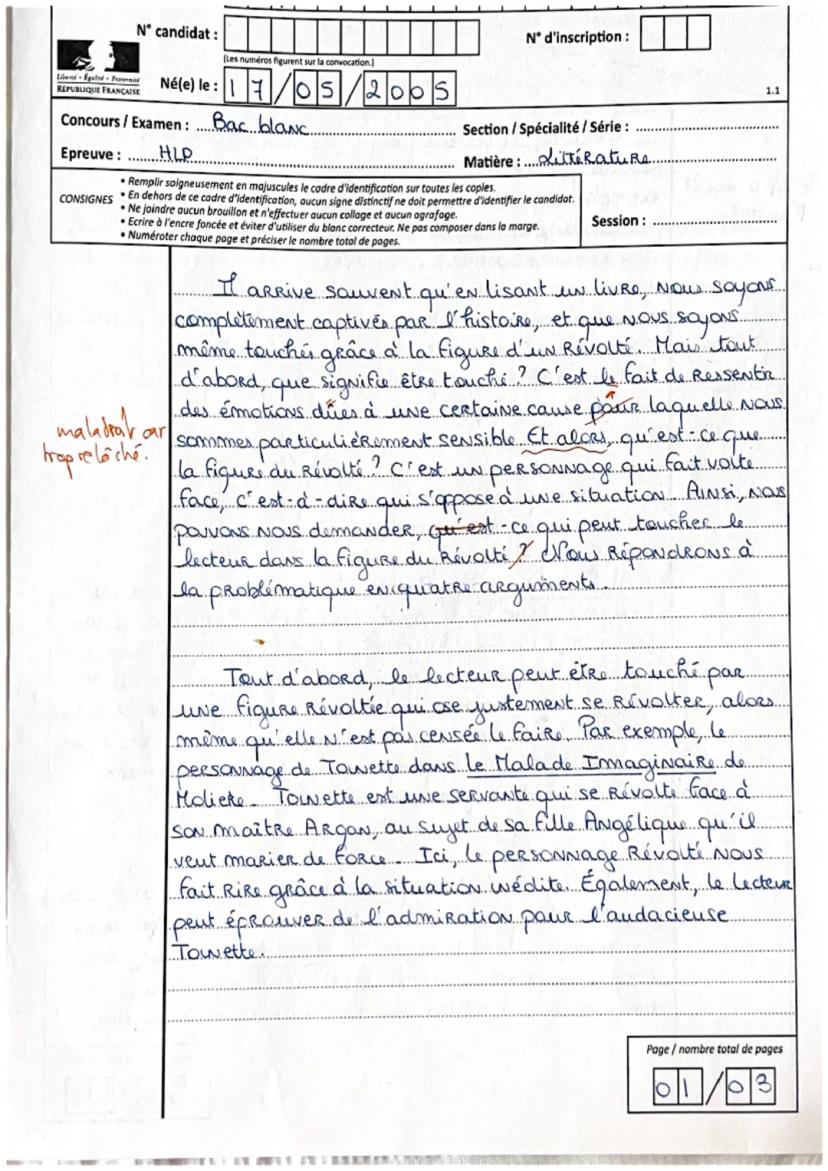 N° candidat :
N° d'inscription :
(Les numéros figurent sur la convocation.)
Liberté • Égalité • Fraternité
RÉPUBLIQUE FRANÇAISE
Né(e) le : 17/05/2005
1.1
Concours / Examen : Bac blanc
Section / Spécialité / Série :
Epreuve : HLP
Matière : Littérature
CONSIGNES
• Remplir soigneusement en majuscules le cadre d'identification sur toutes les copies.
• En dehors de ce cadre d'identification, aucun signe distinctif ne doit permettre d'identifier le candidat.
• Ne joindre aucun brouillon et n'effectuer aucun collage et aucun agrafage.
• Ecrire à l'encre foncée et éviter d'utiliser du blanc correcteur. Ne pas composer dans la marge.
• Numéroter chaque page et préciser le nombre total de pages.
Session :
Il arrive souvent qu'en lisant un livre, nous soyons
complètement captivés par l'histoire, et que nous soyons
même touchés grâce à la figure d'un révolté. Mais tout
d'abord, que signifie être touché ? C'est le fait de ressentir
des émotions dûes à une certaine cause pour laquelle nous
sommes particulièrement sensible. Et alors, qu'est-ce que
maladroit car
trop relâché.
la figure du révolté ? C'est un personnage qui fait volte
face, c'est-à-dire qui s'oppose à une situation. Ainsi, nous
pouvons nous demander, qu'est-ce qui peut toucher le
lecteur dans la figure du révolté ? Nous répondrons à
la problématique en quatre arguments.
Tout d'abord, le lecteur peut être touché par
une figure révoltée qui ose justement se révolter, alors
même qu'elle n'est pas censée le faire. Par exemple, le
personnage de Toinette dans le Malade Immaginaire de
Moliere. Toinette est une servante qui se révolte face à
son maître Argan, au sujet de sa fille Angélique qu'il
veut marier de force. Ici, le personnage révolté nous
fait rire grâce à la situation inédite. Également, le lecteur
peut éprouver de l'admiration pour l'audacieuse
Toinette.
Page / nombre total de pages
01/03